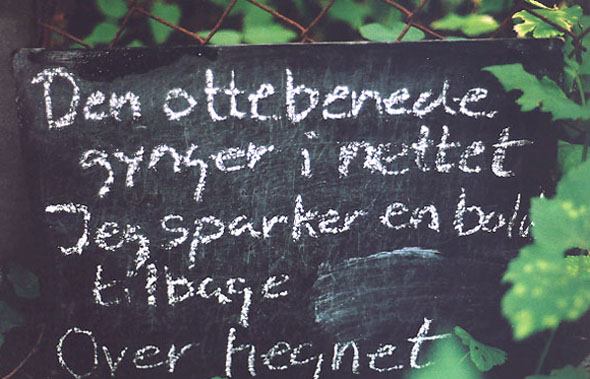 Den ottebenede
gynger i nettet
Jeg sparker en bold
tilbage
Over hegnet